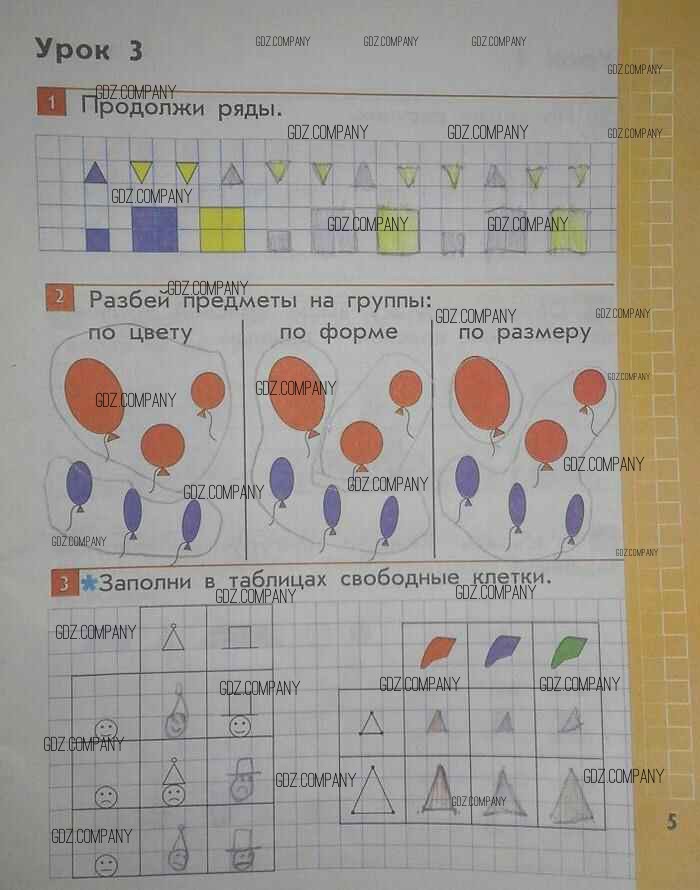 Урок 3
GDZ.COMPANY GDZ.COMPANY GDZ.COMPANY
GDZ.COMPANY
GDZ.COMPANY
1 Продолжи ряды.
GDZ.COMPANY GDZ.COMPANY GDZ.COMPANY
GDZ.COMPANY
GDZ.COMPANY GDZ.COMPANY
GDZ.COMPANY
2 Разбей предметы на группы:
GDZ.COMPANY GDZ.COMPANY
по цвету по форме по размеру
GDZ.COMPANY
GDZ.COMPANY GDZ.COMPANY
GDZ.COMPANY
GDZ.COMPANY GDZ.COMPANY
GDZ.COMPANY GDZ.COMPANY
3 *Заполни в таблицах свободные клетки.
GDZ.COMPANY GDZ.COMPANY
GDZ.COMPANY
GDZ.COMPANY GDZ.COMPANY GDZ.COMPANY
GDZ.COMPANY
GDZ.COMPANY GDZ.COMPANY
GDZ.COMPANY
5
GDZ.COMPANY